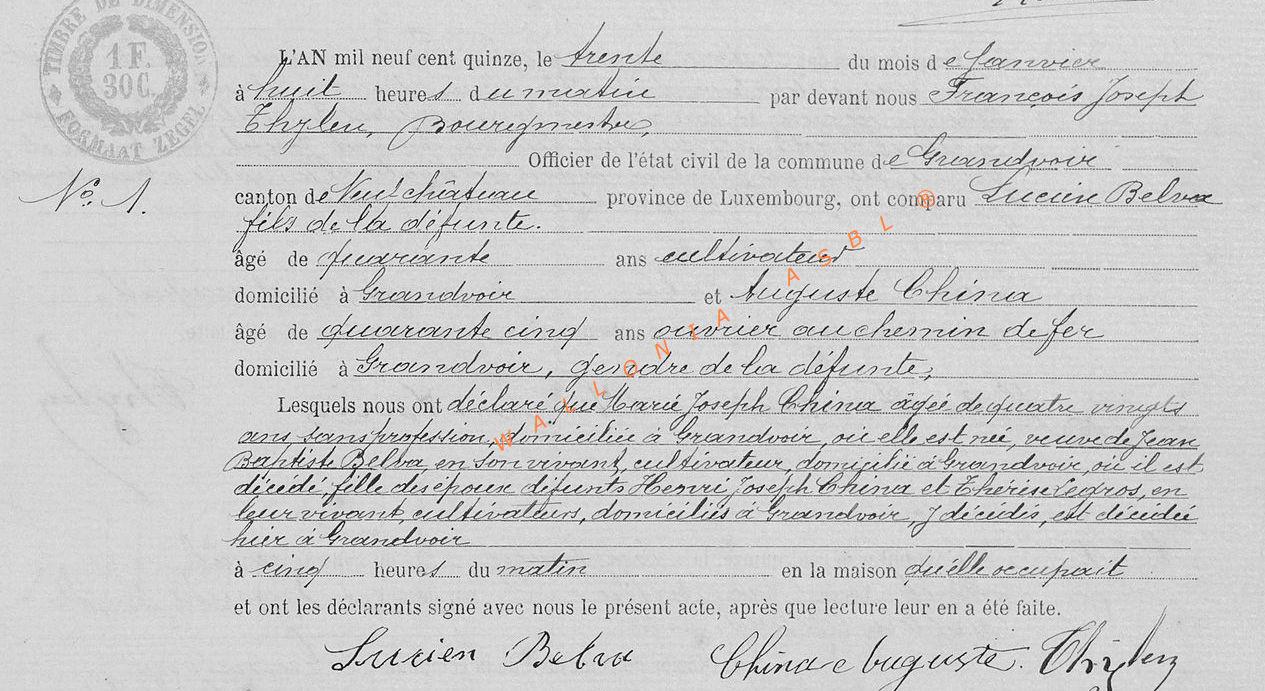 TIMBRE DE DIMENSION
1 F.
30C.
FORMAAT ZEGEL
No. 1.
L'AN mil neuf cent quinze, le trente du mois de Janvier
à huit heures du matin par devant nous François Joseph
Thylen, Bourgmestre,
Officier de l'état civil de la commune de Grandvoir
canton de Neufchâteau province de Luxembourg, ont comparu Lucien Belva
fils de la défunte.
âgé de quarante ans cultivateur
domicilié à Grandvoir et Auguste China
âgé de quarante cinq ans ouvrier au chemin de fer
domicilié à Grandvoir, gendre de la défunte,
Lesquels nous ont déclaré que Marie Joseph China âgée de quatre vingts
ans, sans profession, domiciliée à Grandvoir, où elle est née, veuve de Jean
Baptiste Belva, en son vivant, cultivateur, domicilié à Grandvoir, où il est
décédé, fille des époux défunts Henri Joseph China et Thérèse Legros, en
leur vivant, cultivateurs, domiciliés à Grandvoir, y décédés, est décédée
hier à Grandvoir
à cinq heures du matin en la maison qu'elle occupait
et ont les déclarants signé avec nous le présent acte, après que lecture leur en a été faite.
Lucien Belva China Auguste. Thylen
WALLONIA ASBL ®